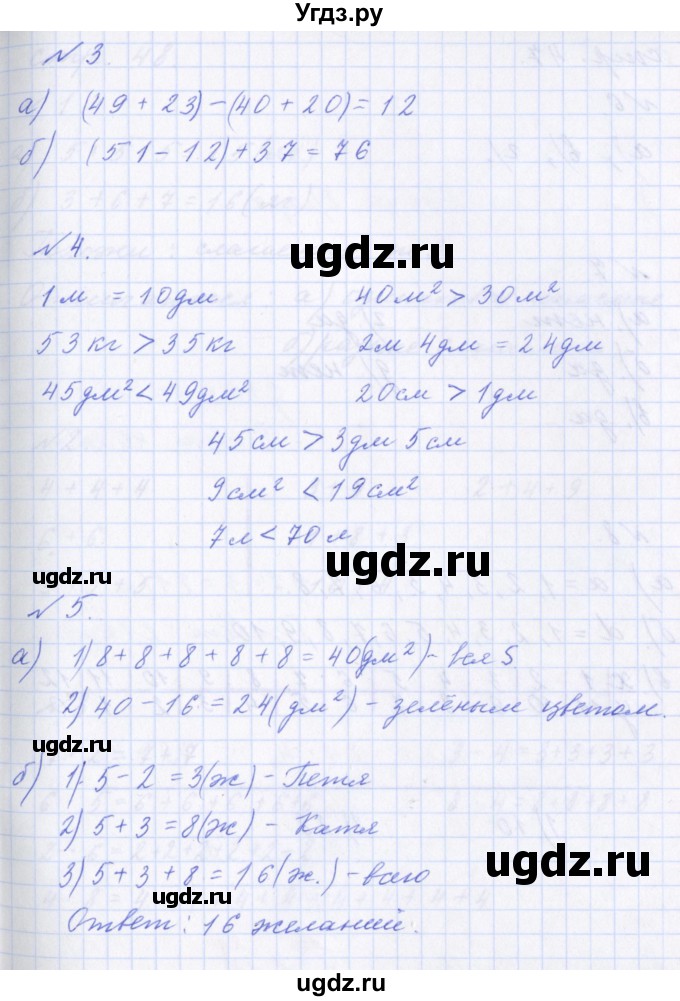 Угдз.ру
№ 3.
а) (49 + 23) - (40 + 20) = 12
б) (51 - 12) + 37 = 76
№ 4.
ugdz.ru
1 м = 10 дм 40 м² > 30 м²
53 кг > 35 кг 2м 4дм = 24дм
45 дм² < 49 дм² 20см > 1дм
45 см > 3дм 5см
9см² < 19см²
7л < 70л
ugdz.ru ugdz.ru
№ 5.
а) 1) 8 + 8 + 8 + 8 + 8 = 40(дм²) - вся S
2) 40 - 16 = 24(дм²) - зелёным цветом.
ugdz.ru
б) 1) 5 - 2 = 3(ж) - Петя
2) 5 + 3 = 8(ж) - Катя
ugdz.ru
3) 5 + 3 + 8 = 16(ж.) - всего
ugdz.ru
Ответ: 16 желаний.
ugdz.ru